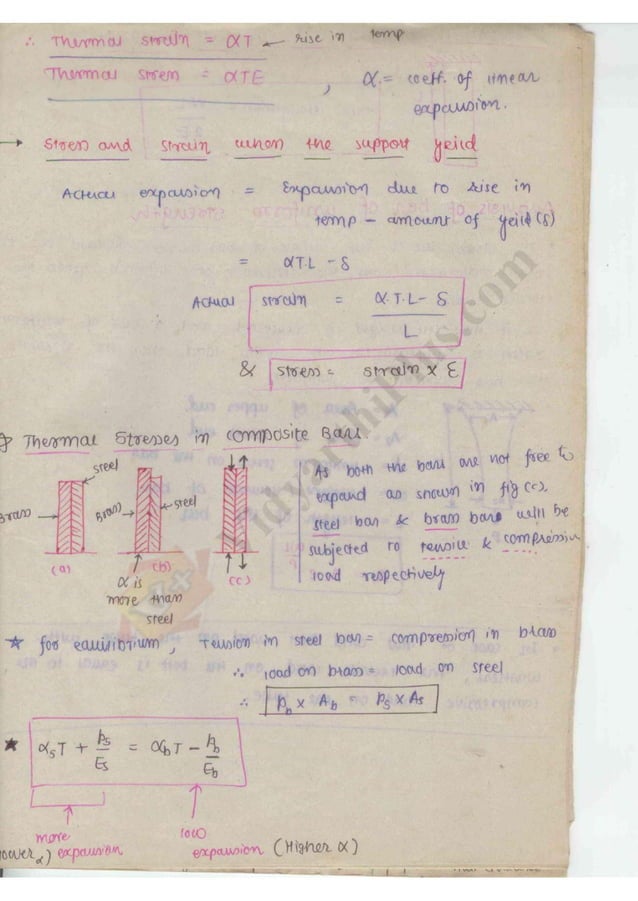 ∴ Thermal strain = αT ← rise in temp
Thermal stress = αTE , α = coeff. of linear
expansion.
→ Stress and strain when the support yeild
Actual expansion = Expansion due to rise in
temp - amount of yeild (δ)
= αT.L - δ
Actual strain = α.T.L - δ / L
& stress = strain x E
Thermal Stresses in composite Bars.
steel
Brass
(a)
Brass
steel
(b)
α is
more than
steel
(c)
As both the bars are not free to
expand as shown in fig (c),
steel bar & brass bars will be
subjected to tensile & compressive
load respectively
★ for equilibrium, Tension in steel bar = compression in brass
∴ load on brass = load on steel
∴ Pb x Ab = Ps x As
★ αsT + Ps/Es = αbT - Pb/Eb
more
(lower α) expansion
less
expansion (Higher α)
VidyarthiPlus.com
V+